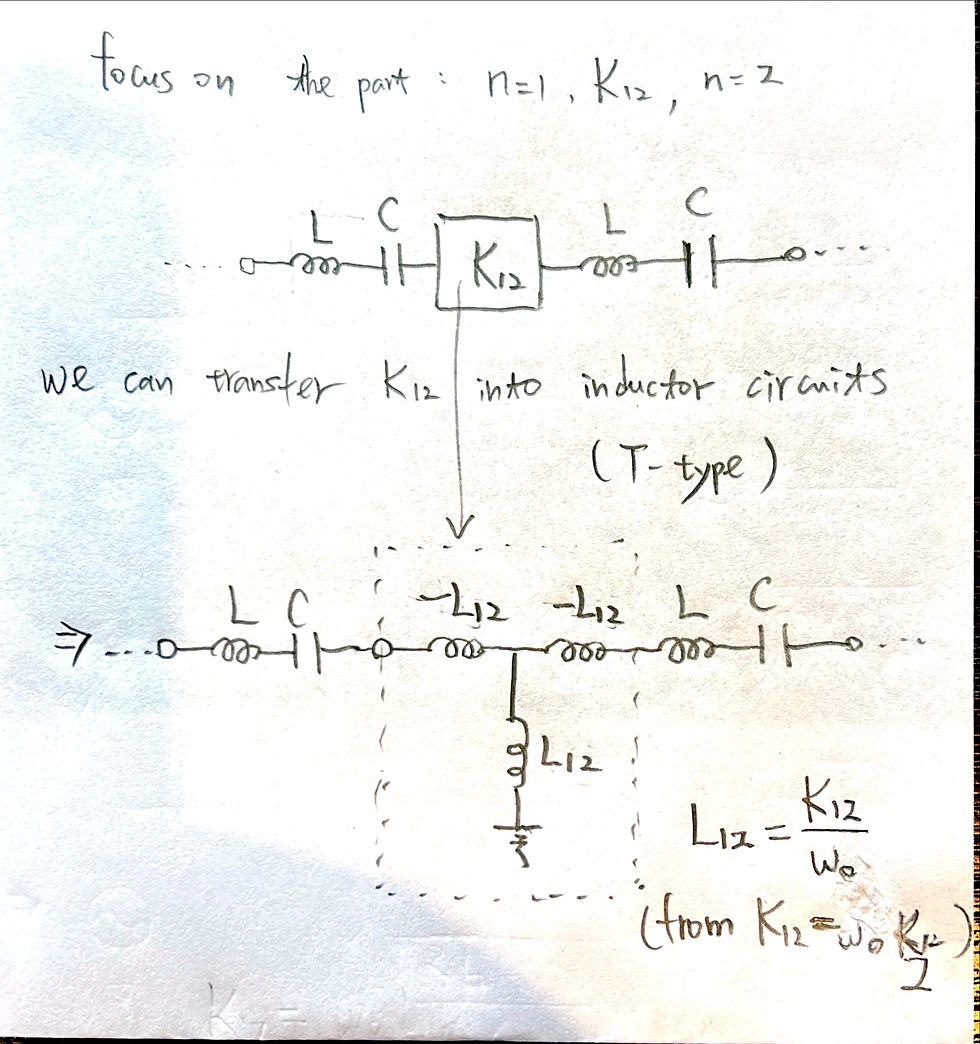 focus on the part : n=1, K12, n=2
L C L C
K12
we can transfer K12 into inductor circuits
(T-type)
L C -L12 -L12 L C
⇒
L12
L12 = K12 / W0
(from K12 = W0